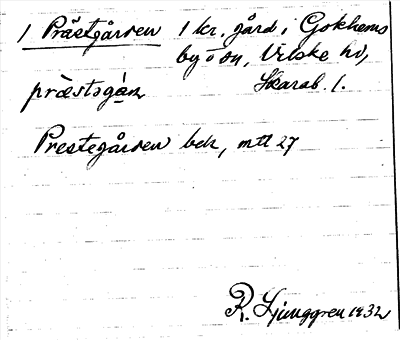 1 Prästgården 1 kr. gård i Gökhems
by o sn, Vilske hd,
præstogán Skarab. l.
Prestegården bek, mtl 27
R. Ljunggren 1932